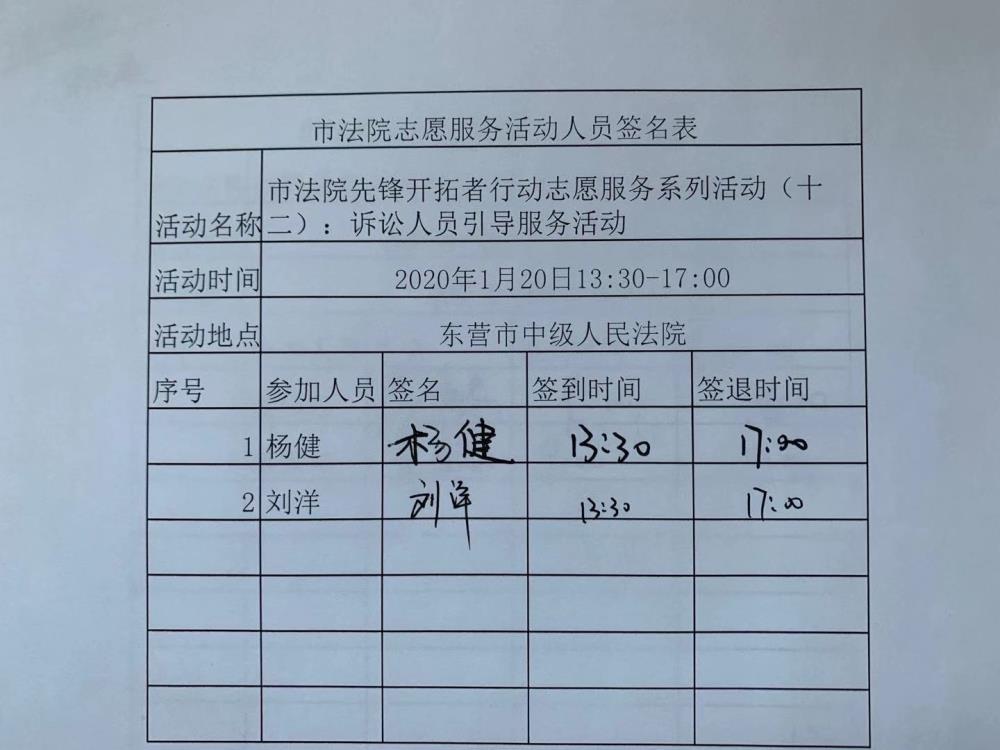 市法院志愿服务活动人员签名表
市法院先锋开拓者行动志愿服务系列活动（十
活动名称 二）：诉讼人员引导服务活动
活动时间 2020年1月20日13:30-17:00
活动地点 东营市中级人民法院
序号 参加人员 签名 签到时间 签退时间
1 杨健 杨健 13:30 17:00
2 刘洋 刘洋 13:30 17:00